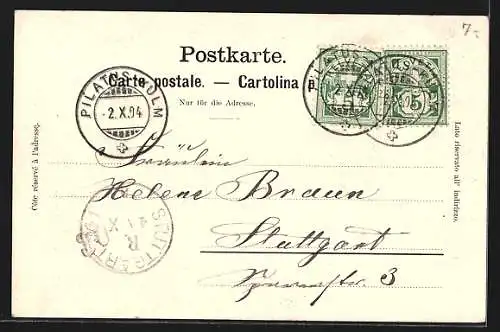 7-
Postkarte.
Carte postale. — Cartolina p
Nur für die Adresse.
PILATUS-KULM
-2.X.04
PILATUS-KULM
2.X.
05
Côté réservé à l'adresse.
Lato riservato all' indirizzo.
Fräulein
Helene Braun
Stuttgart
3
STUTTGART
R
4 X